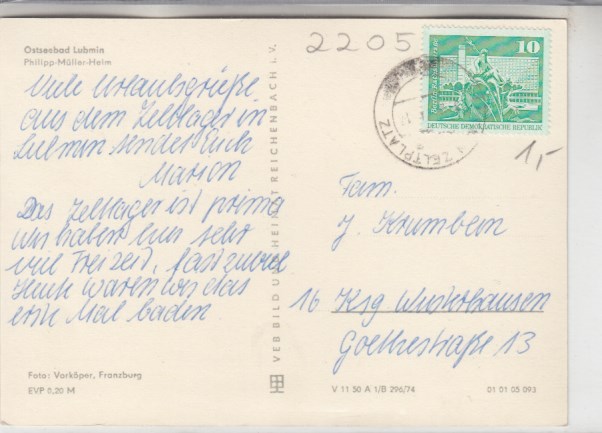 Ostseebad Lubmin
Philipp-Müller-Heim
Viele Urlaubsgrüße
aus dem Zeltlager in
Lubmin sendet Euch
Marion
Das Zeltlager ist prima
wir haben hier sehr
viel Freizeit, fast zuviel
Heute waren wir das
erste Mal baden.
Foto: Vorköper, Franzburg
EVP 0,20 M
VEB BILD UND HEIMAT REICHENBACH i. V.
2205
10
DEUTSCHE DEMOKRATISCHE REPUBLIK
ZELTPLATZ
1,-
Fam.
J. Krumbein
16 Ksg Wusterhausen
Goethestraße 13
V 11 50 A 1/B 296/74
01 01 05 093